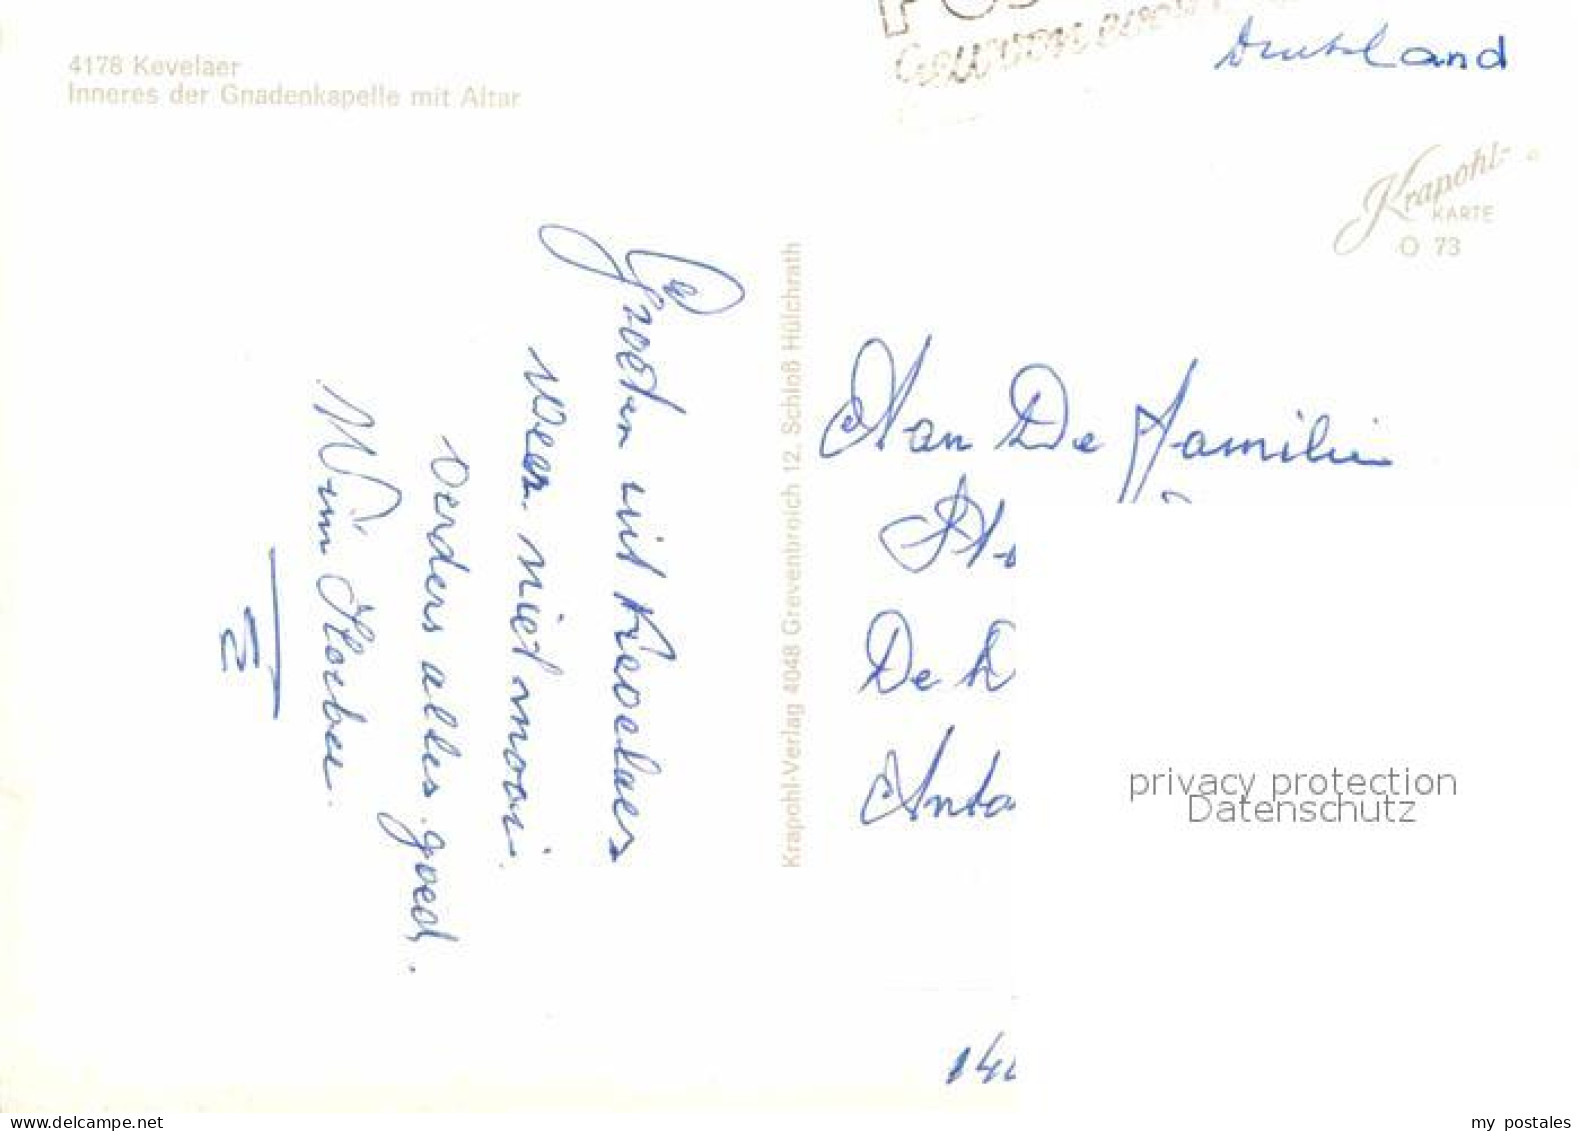 4178 Kevelaer
Inneres der Gnadenkapelle mit Altar
Deutschland
Krapohl-
KARTE
O 73
Groeten uit Kevelaer
Weer niet mooi.
verders alles goed.
Wim
Krapohl-Verlag 4048 Grevenbroich 12, Schloß Hülchrath
Aan De Familie
De
privacy protection
Datenschutz
www.delcampe.net
my postales